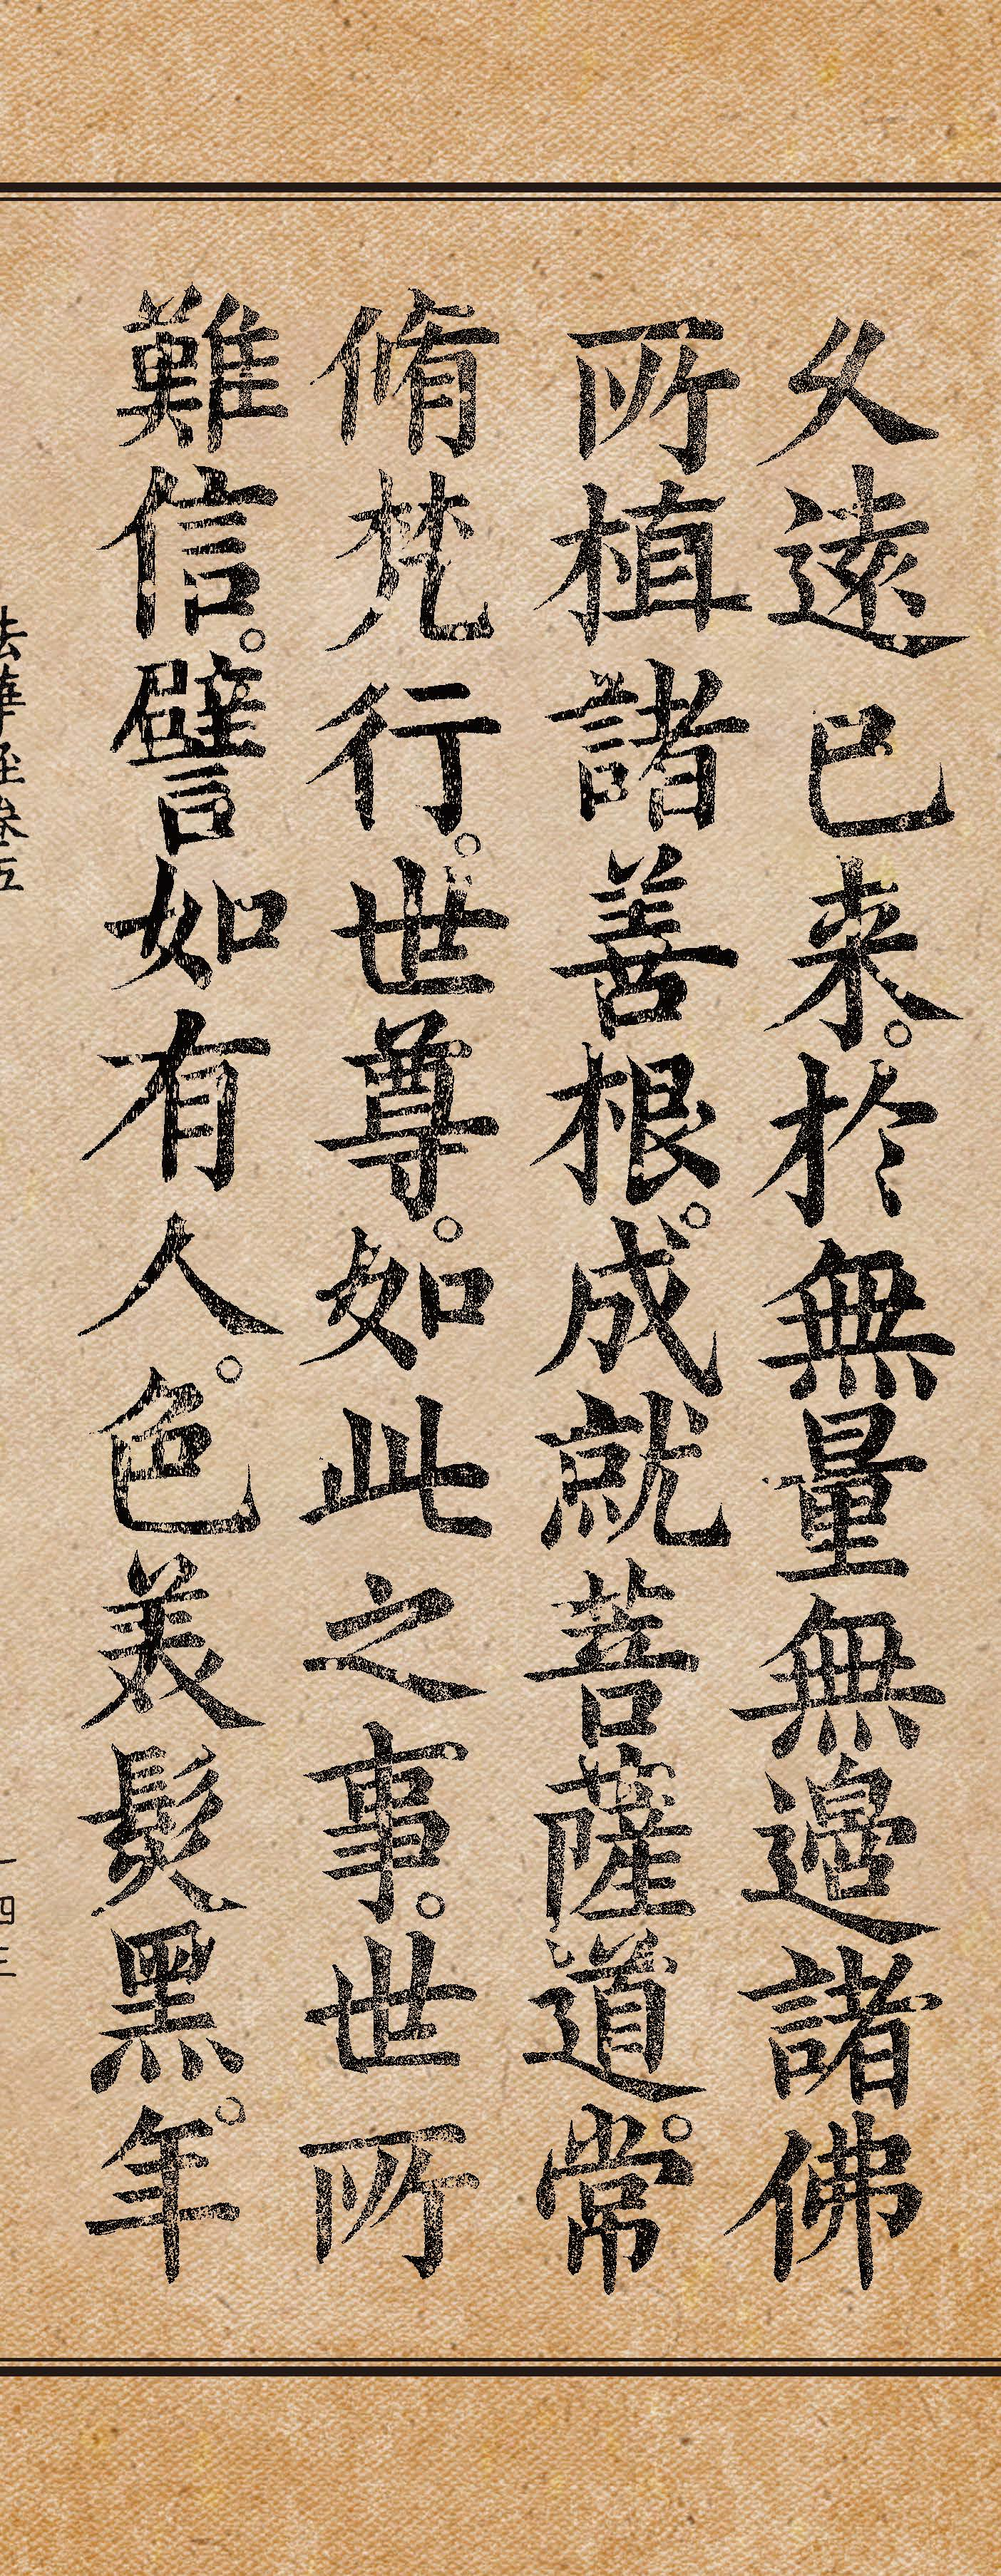 久遠已来。於無量無邊諸佛
所植諸善根。成就菩薩道。常
脩梵行。世尊。如此之事。世所
難信。譬如有人。色美髮黑。年
法華経巻五
一四三